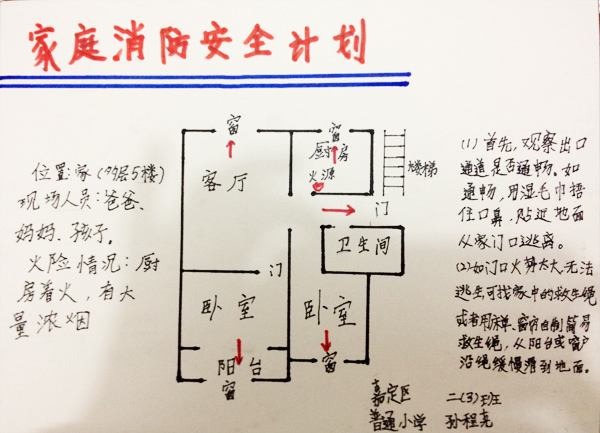 家庭消防安全计划
位置:家(9层5楼)
现场人员:爸爸、
妈妈、孩子。
火险情况:厨
房着火,有大
量浓烟
窗
客厅
窗
厨房
火源
楼梯
门
卫生间
门
卧室
卧室
阳台
窗
窗
(1)首先,观察出口
通道是否通畅。如
通畅,用湿毛巾捂
住口鼻,贴近地面
从家门口逃离。
(2)如门口火势太大,无法
逃生可找家中的救生绳
或者用床单、窗帘自制简易
救生绳,从阳台或窗户
沿绳缓慢滑到地面。
嘉定区 二(3)班
普通小学 孙程亮